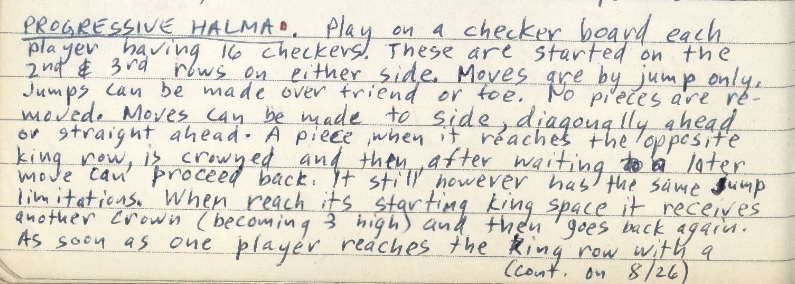 PROGRESSIVE HALMA. Play on a checker board each
player having 16 checkers. These are started on the
2nd & 3rd rows on either side. Moves are by jump only.
Jumps can be made over friend or foe. No pieces are re-
moved. Moves can be made to side, diagonally ahead
or straight ahead. A piece, when it reaches the opposite
king row, is crowned and then, after waiting to a later
move can proceed back. It still however has the same jump
limitations. When reach its starting king space it receives
another crown (becoming 3 high) and then goes back again.
As soon as one player reaches the king row with a
(cont. on 8/26)